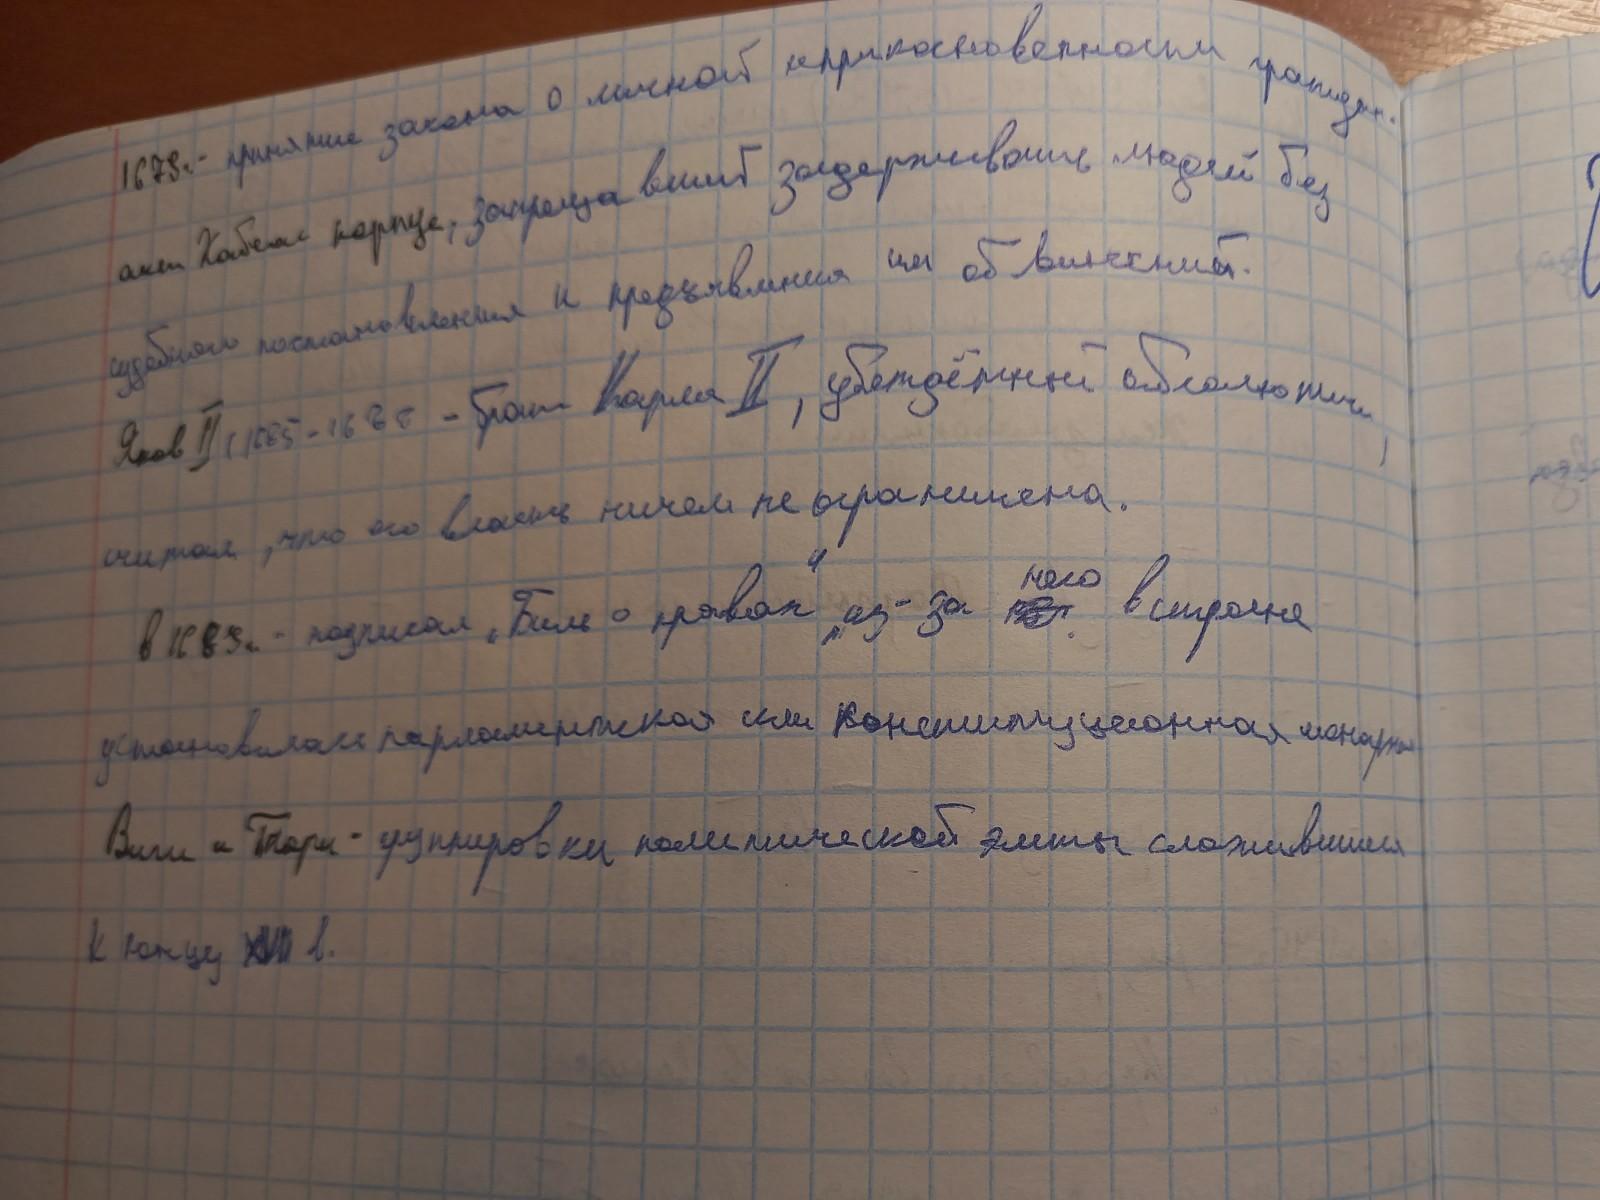 1679г.- принятие закона о личной неприкосновенности граждан.
акт Хабеас корпус, запрещавший задерживать людей без
судебного постановления и предъявления им обвинений.
Яков II (1685-1688 - брат Карла II, убеждённый абсолютист,
считал, что его власть ничем не ограничена.
в 1689г. - подписал „Билль о правах“, из-за чего в стране
установилась парламентская или конституционная монархия
Виги и Тори - группировки политической элиты сложившиеся
к концу XVII в.